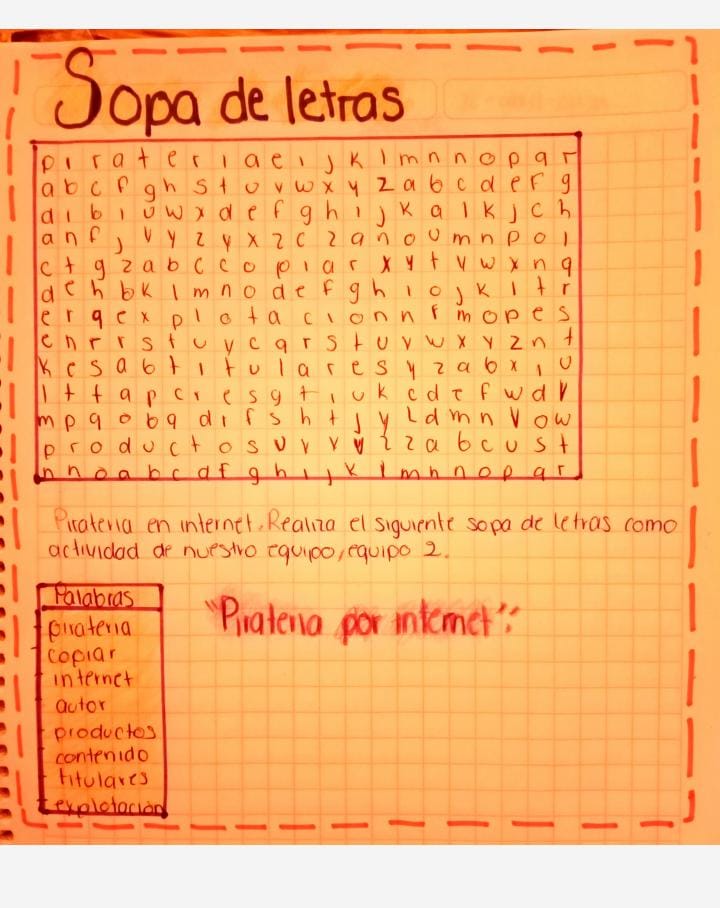 Sopa de letras
p i r a t e r i a e i j k l m n n o p a r
a b c f g h s t u v w x y z a b c d e f g
d i b i u w x d e f g h i j k a l k j c h
a n f j v y z y x z c z a n o u m n p o i
c t g z a b c c o p i a r x y t v w x n q
d e h b k l m n o d e f g h i o j k l t r
e r q e x p l o t a c i o n n r m o p e s
e n r r s t u v c q r s t u v w x y z n t
k e s a b t i t u l a r e s y z a b x i u
l t t a p c r e s g t i u k c d e f w d v
m p q o b q d i f s h t j y l d m n v o w
p r o d u c t o s u v v y z z a b c u s t
n n o a b c d f g h i j k l m n n o p a r
Piratería en internet. Realiza el siguiente sopa de letras como
actividad de nuestro equipo, equipo 2.
Palabras
piratería
copiar
internet
autor
productos
contenido
titulares
explotación
"Piratería por internet":